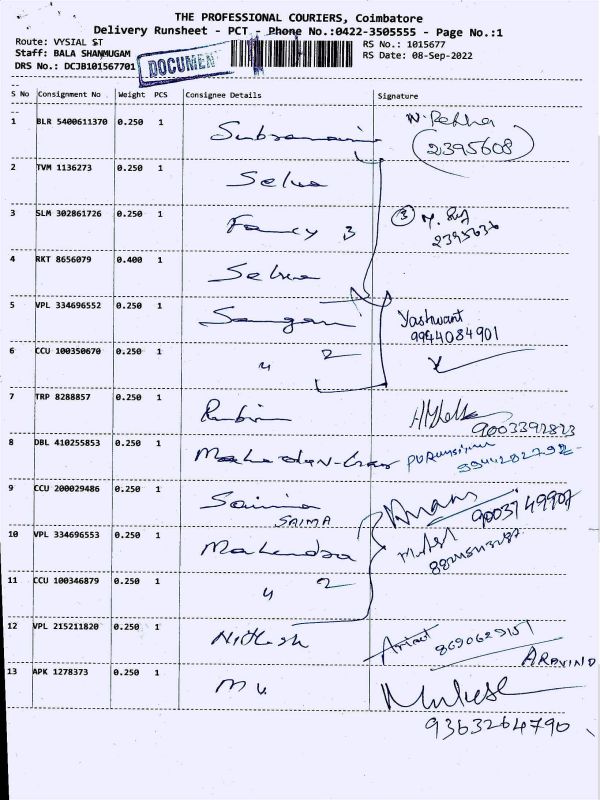 THE PROFESSIONAL COURIERS, Coimbatore
Delivery Runsheet - PCT - Phone No.:0422-3505555 - Page No.:1
Route: VYSIAL ST
RS No.: 1015677
Staff: BALA SHANMUGAM
RS Date: 08-Sep-2022
DRS No.: DCJB101567701
DOCUMEN
S No Consignment No Weight PCS Consignee Details Signature
1 BLR 5400611370 0.250 1
2395608
2 TVM 1136273 0.250 1 Selva
3 SLM 302861726 0.250 1 Fancy 3 3
2395636
4 RKT 8656079 0.400 1 Selva
5 VPL 334696552 0.250 1 Sangam Yashwant
9944084901
6 CCU 100350670 0.250 1 " 2
7 TRP 8288857 0.250 1 Rubin
9003392823
8 DBL 410255853 0.250 1
9944282792
9 CCU 200029486 0.250 1 Saima
SAIMA
9003749907
10 VPL 334696553 0.250 1 Mahendra
11 CCU 100346879 0.250 1 " 2
12 VPL 215211820 0.250 1 Nithesh 8690629151
ARAVIND
13 APK 1278373 0.250 1 Mukesh
9363264790